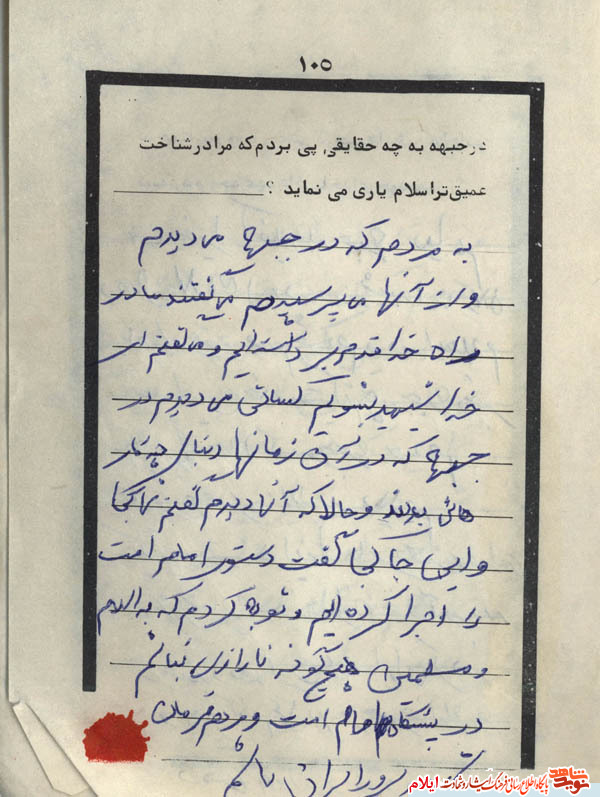 ۱۰۵
در جبهه به چه حقایقی پی بردم که مرا در شناخت
عمیق‌تر اسلام یاری می نماید ؟
به مردم که در جبهها می دیدم
و از آنها می پرسیدم می گفتند ما در
راه خدا قدم بر داشته ایم و می گفتم ای
خدا شهید بشویم کسانی می دیدم در
جبهها که در آن زمانها دنبال چه کار
هائی بودند و حالا که آنها دیدم گفتم شما کجا
و این جا کجا گفت دستور امام امت
را اجرا کرده ایم و توبه کردم که به اسلام
و مسلمین هیچ گونه ناراضی نباشم
در پیشگاه امام امت و مردم قهرمان
نوید شاهد
پایگاه اطلاع رسانی فرهنگ ایثار و شهادت ایلام